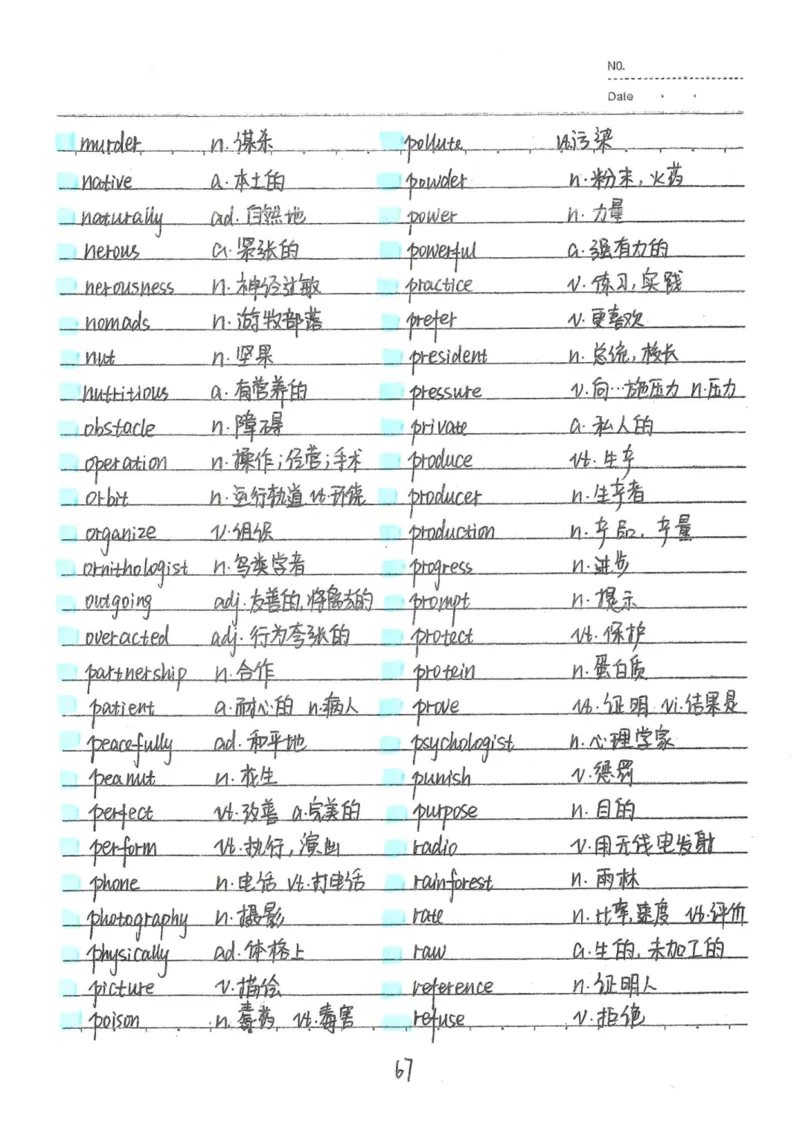 NO.
Date
murder n. 谋杀
native a. 本土的
naturally ad. 自然地
nerous a. 紧张的
nerousness n. 神经过敏
nomads n. 游牧部落
nut n. 坚果
nutritious a. 有营养的
obstacle n. 障碍
operation n. 操作;经营;手术
orbit n. 运行轨道 vt. 环绕
organize v. 组织
ornithologist n. 鸟类学者
outgoing adj. 友善的,将离去的
overacted adj. 行为夸张的
partnership n. 合作
patient a. 耐心的 n. 病人
peacefully ad. 和平地
peanut n. 花生
perfect vt. 改善 a. 完美的
perform vt. 执行,演出
phone n. 电话 vt. 打电话
photography n. 摄影
physically ad. 体格上
picture v. 描绘
poison n. 毒药 vt. 毒害
pollute vt. 污染
powder n. 粉末,火药
power n. 力量
powerful a. 强有力的
practice v. 练习,实践
prefer v. 更喜欢
president n. 总统,校长
pressure v. 向…施压力 n. 压力
private a. 私人的
produce vt. 生产
producer n. 生产者
production n. 产品,产量
progress n. 进步
prompt n. 提示
protect vt. 保护
protein n. 蛋白质
prove vt. 证明 vi. 结果是
psychologist n. 心理学家
punish v. 惩罚
purpose n. 目的
radio v. 用无线电发射
rainforest n. 雨林
rate n. 比率,速度 vt. 评价
raw a. 生的,未加工的
reference n. 证明人
refuse v. 拒绝
67